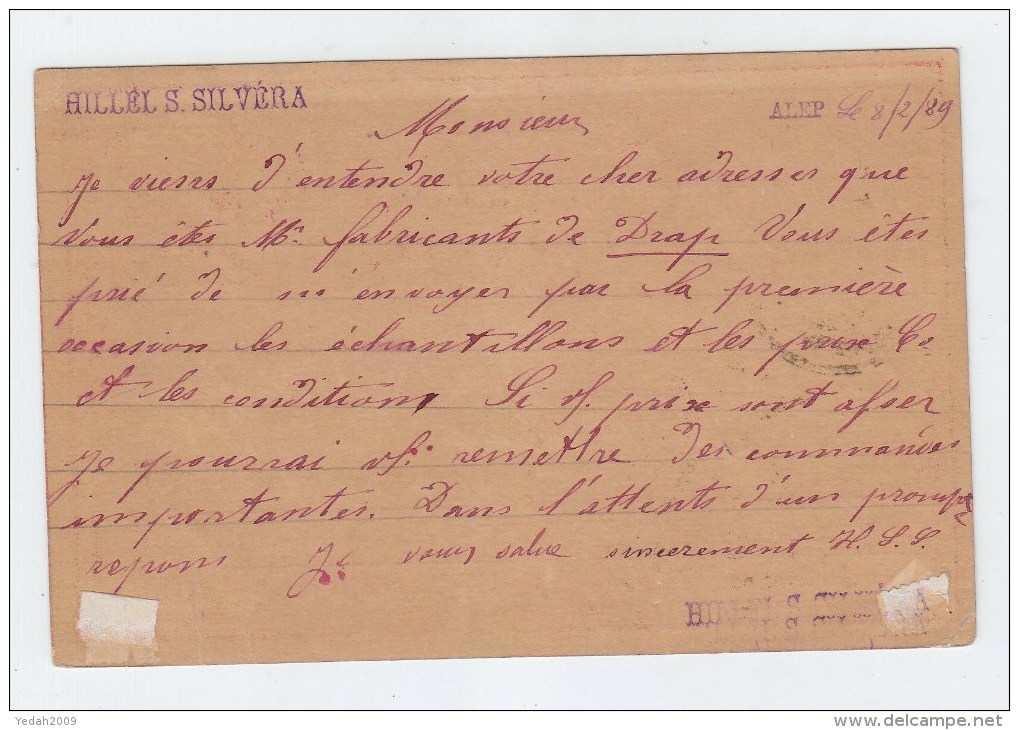 HILLÉL S. SILVÉRA
ALEP Le 8/2/89
Monsieur
Je viens d'entendre votre cher adresses que
Vous êtes Mr. fabricants de Drap Vous êtes
prié de m'envoyer par la première
occasion les échantillons et les prix Co
et les condition, Si vs. prix sont asser
je pourrai vs. remettre des commandes
importantes. Dans l'attents d'un prompt
repons Je vous salue sincerement H. S. S.
HILLÉL S.
Yedah2009
www.delcampe.net